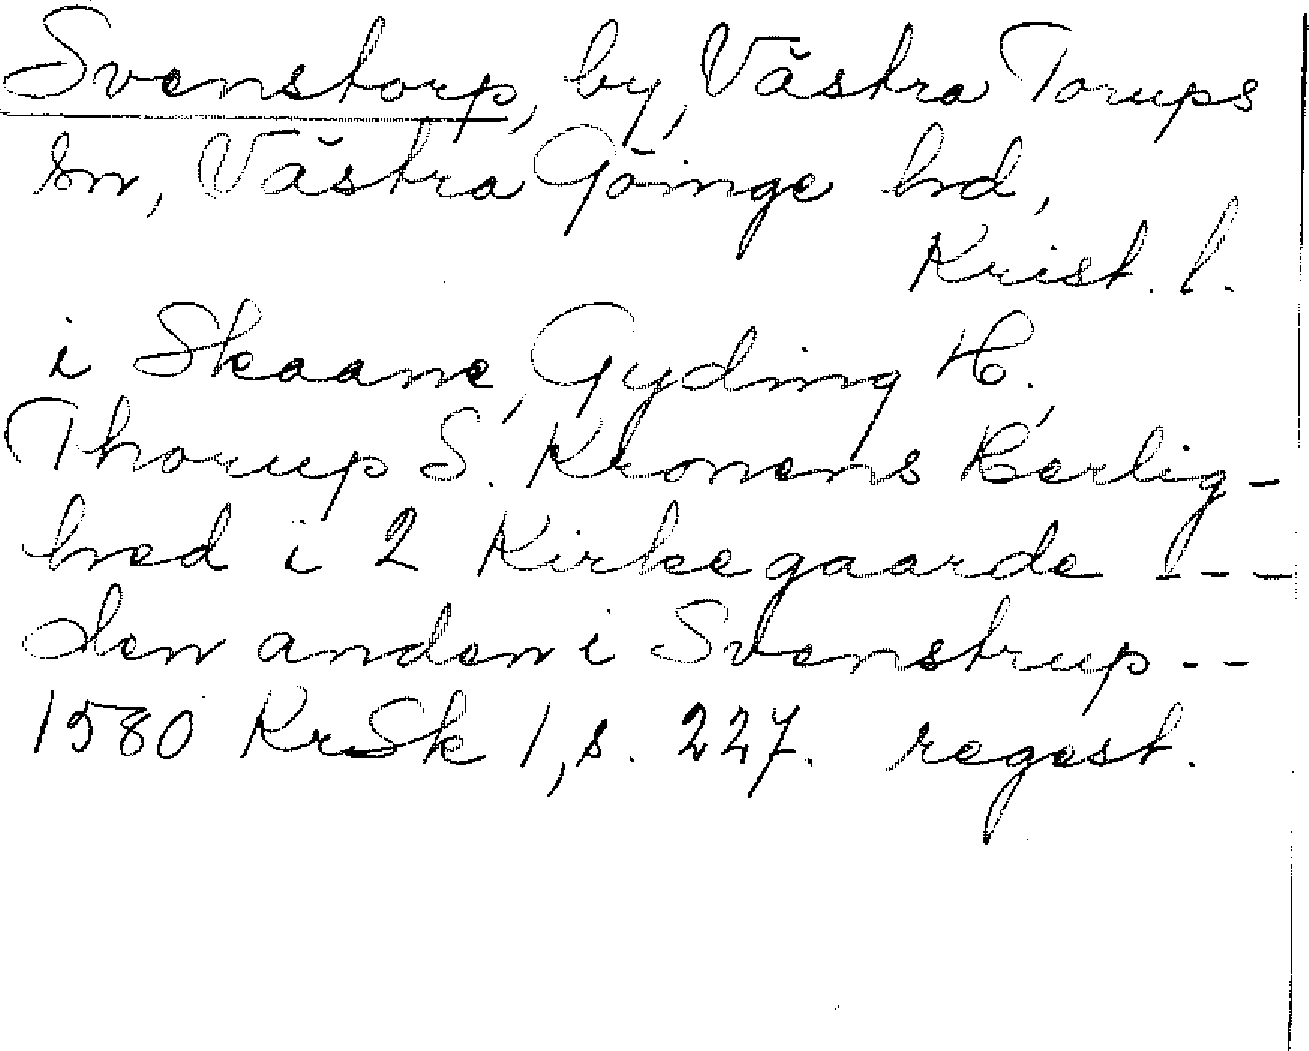 Svenstorp, by, Västra Torups
sn, Västra Göinge hd,
Krist. l.
i Skaane, Gyding H.,
Thorup S. Kronens Herlig-
hed i 2 Kirkegaarde ---
den anden i Svenstrup --
1580 KrSk 1, s. 227. regest.